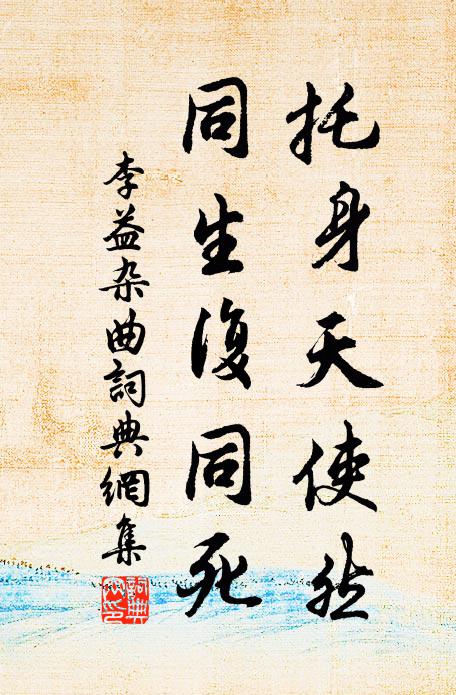 托身天使然
同生復同死
李益杂曲詞典網集
詞典